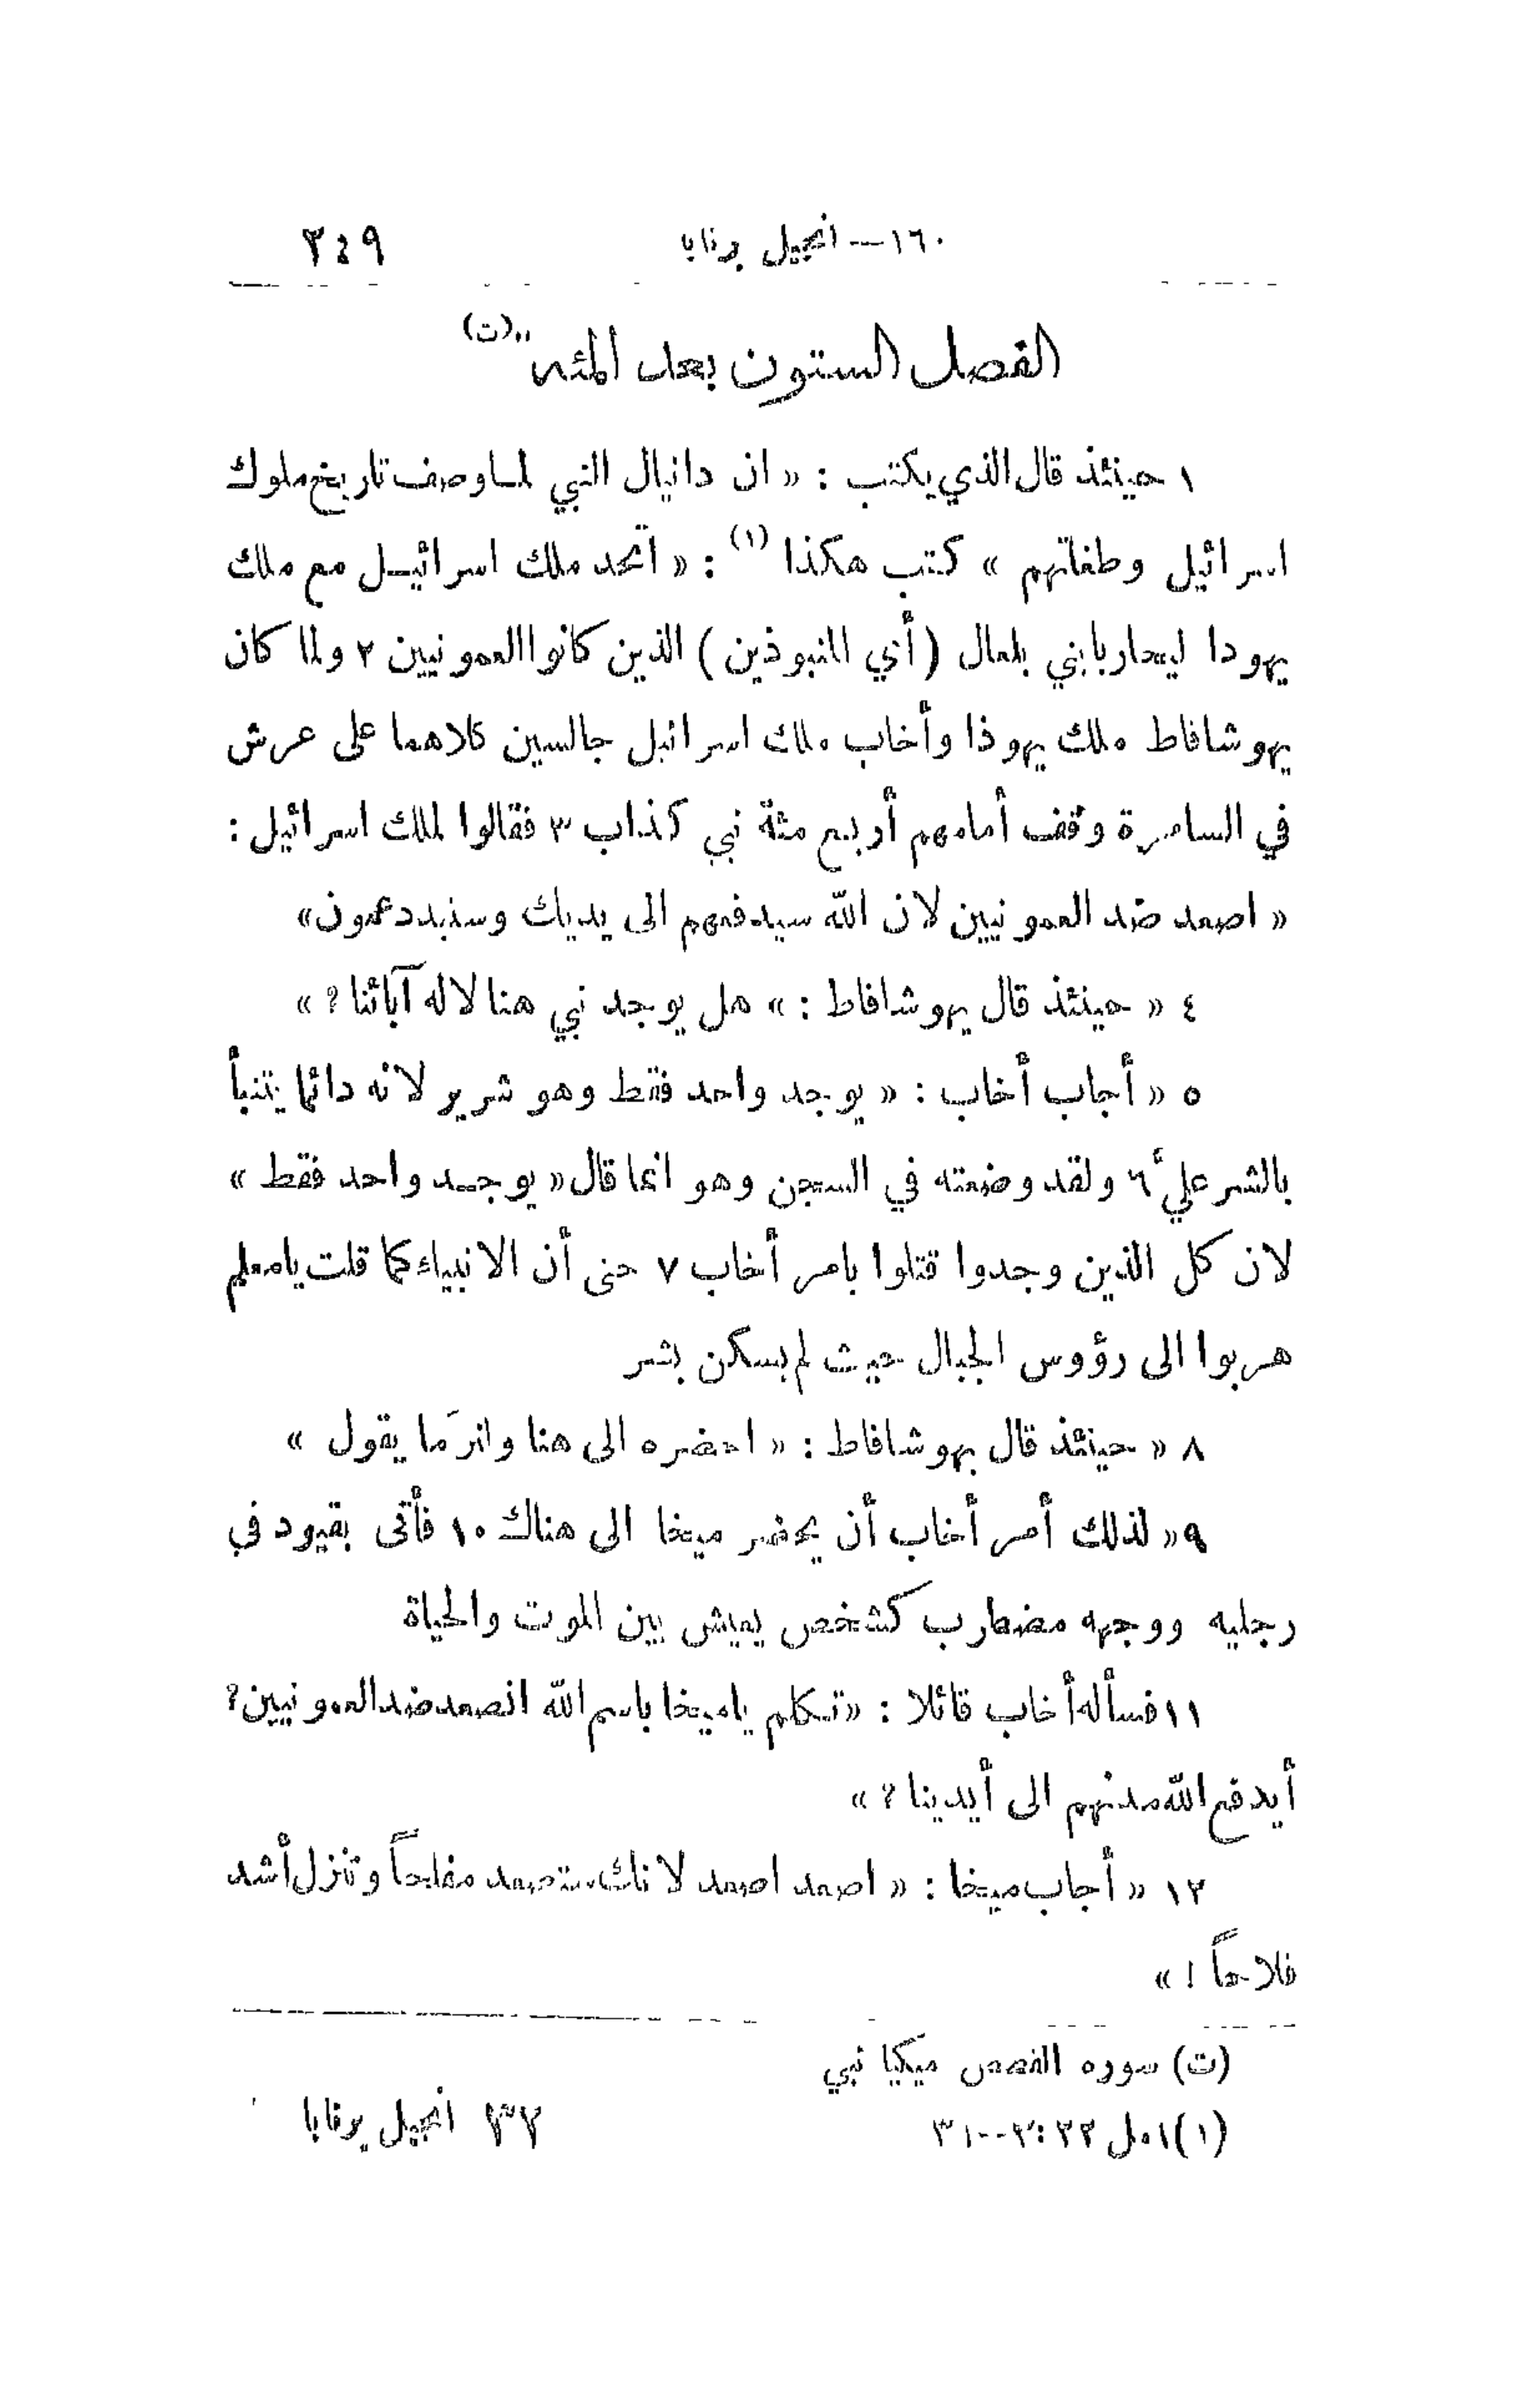 ١٦٠ — انجيل برنابا ٢٤٩
الفصل الستون بعد المئه (ت)
١ حينئذ قال الذي يكتب : « ان دانيال النبي لما وصف تاريخ ملوك
اسرائيل وطغاتهم » كتب هكذا (١) : « اتحد ملك اسرائيل مع ملك
يهودا ليحاربا بني بلعال ( أي المنبوذين ) الذين كانوا العمونيين ٢ ولما كان
يهوشافاط ملك يهوذا وأخاب ملك اسرائيل جالسين كلاهما على عرش
في السامرة وقف أمامهم أربع مئة نبي كذاب ٣ فقالوا لملك اسرائيل :
« اصعد ضد العمونيين لان الله سيدفعهم الى يديك وستبدد عمون »
٤ « حينئذ قال يهوشافاط : » هل يوجد نبي هنا لاله آبائنا ؟ »
٥ « أجاب أخاب : « يوجد واحد فقط وهو شرير لانه دائما يتنبأ
بالشر عليّ ٦ ولقد وضعته في السجن وهو انما قال « يوجد واحد فقط »
لان كل الذين وجدوا قتلوا بامر أخاب ٧ حتى أن الانبياء كما قلت يا معلم
هربوا الى رؤوس الجبال حيث لم يسكن بشر
٨ « حينئذ قال يهوشافاط : « احضره الى هنا ولنرَ ما يقول »
٩ « لذلك أمر أخاب أن يحضر ميخا الى هناك ١٠ فأتى بقيود في
رجليه ووجهه مضطرب كشخص يعيش بين الموت والحياة
١١ فسأله أخاب قائلا : « تكلم يا ميخا باسم الله انصعد ضد العمونيين ؟
أيدفع الله مدنهم الى أيدينا ؟ »
١٢ « أجاب ميخا : « اصعد اصعد لانك ستصعد مفلحاً وتنزل أشد
فلاحاً ! »
(ت) سوره القصص ميكيا نبي
(١) ١ مل ٢٢ : ٢ -- ٣١ ٣٢ انجيل برنابا